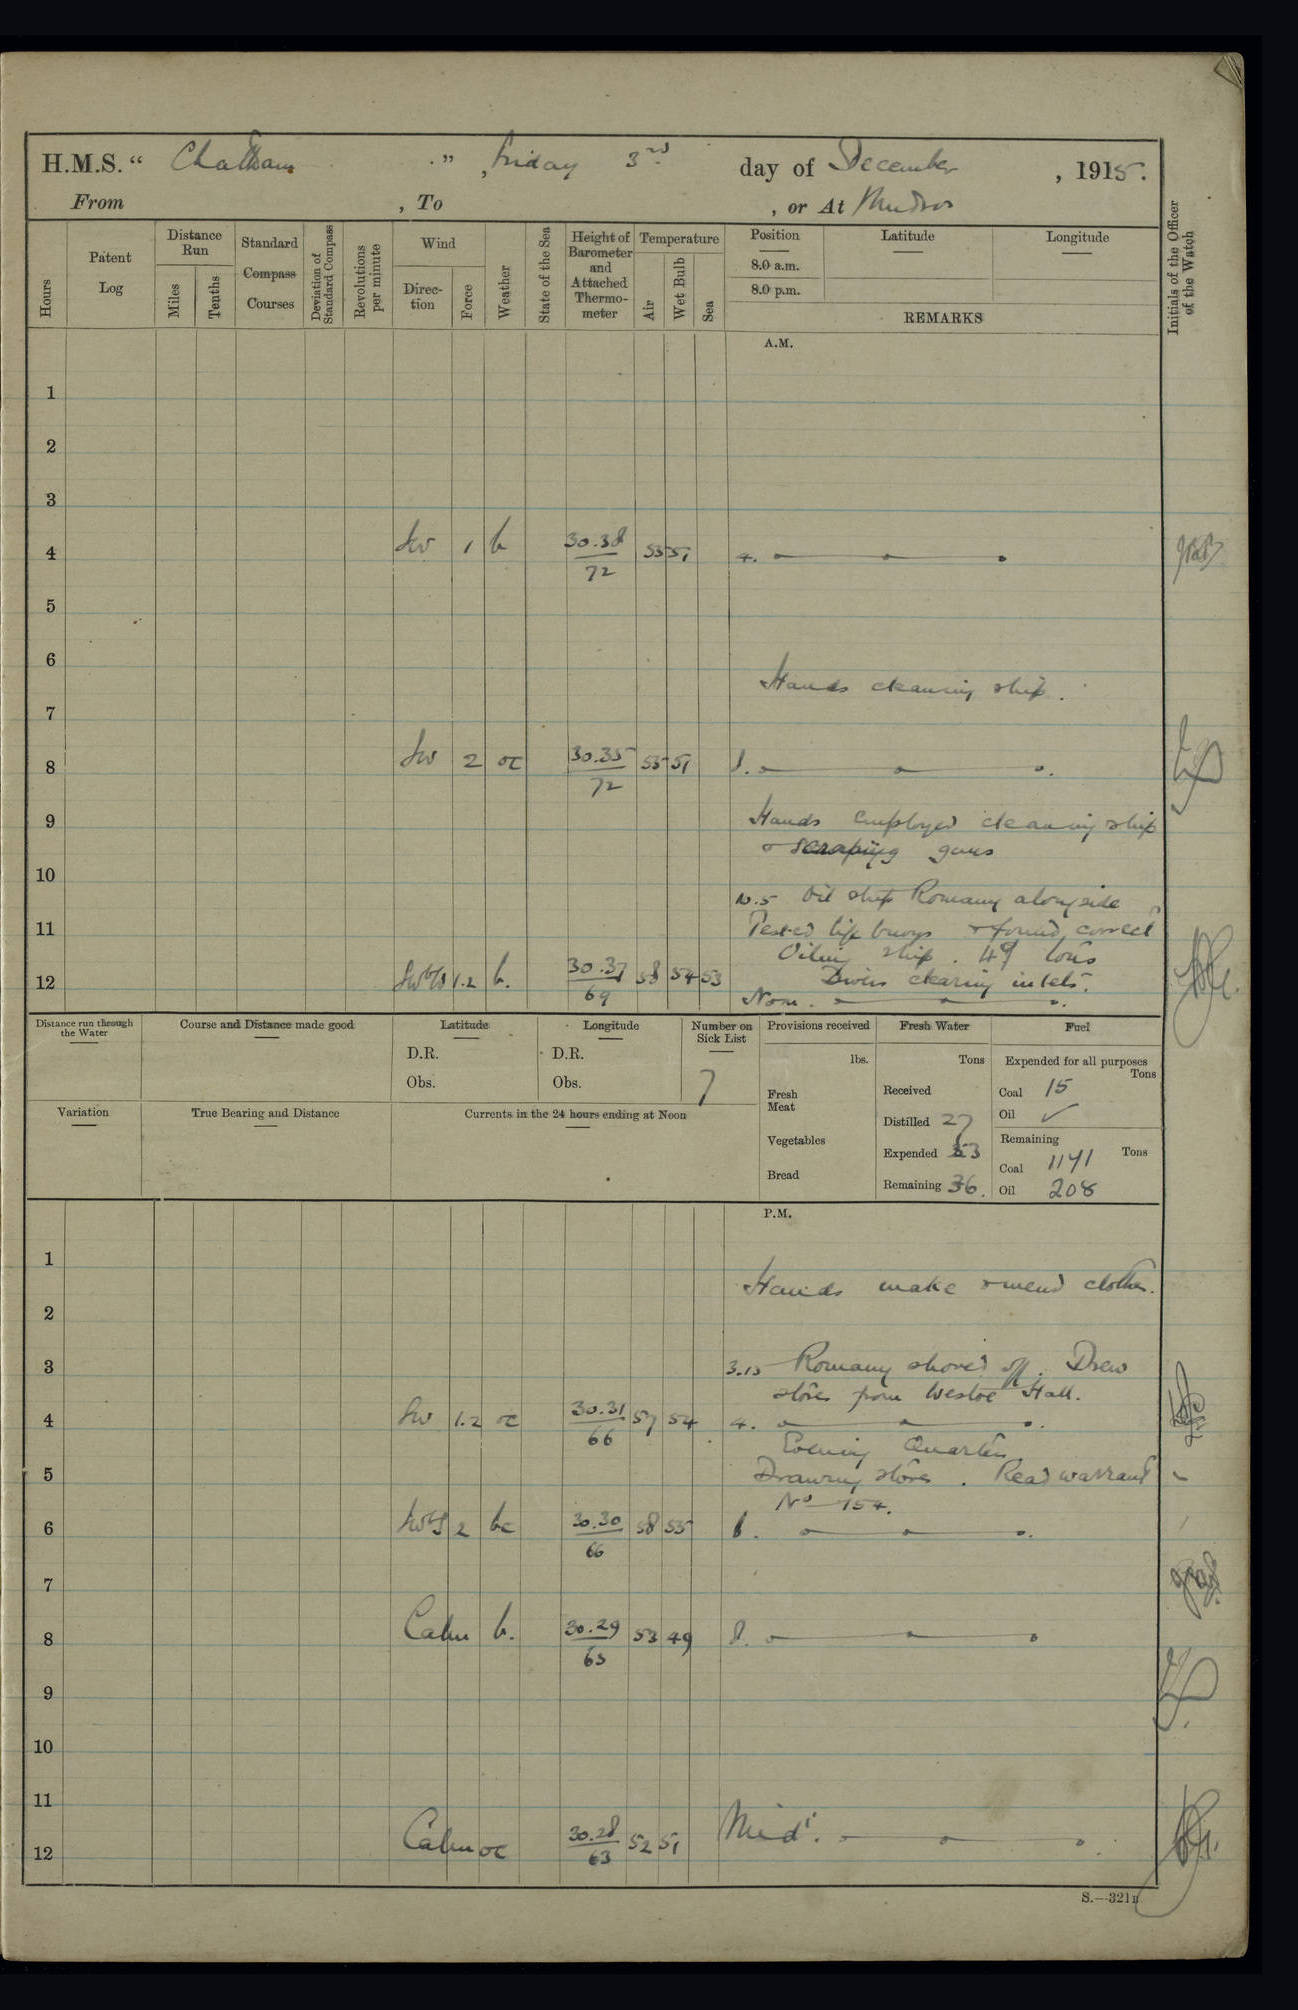 H.M.S. “ Chatham ”, Friday 3rd day of December, 1915.
From , To , or At Mudros
Hours
Patent Log
Distance Run
Miles
Tenths
Standard Compass Courses
Deviation of Standard Compass
Revolutions per minute
Wind
Direction
Force
Weather
State of the Sea
Height of Barometer and Attached Thermometer
Temperature
Air
Wet Bulb
Sea
Position
8.0 a.m.
8.0 p.m.
Latitude
Longitude
REMARKS
Initials of the Officer of the Watch
A.M.
1
2
3
4 SW 1 b 30.38 72 55 51 4.
5
6
Hands cleaning ship.
7
8 SW 2 oc 30.35 72 55 51 8.
9 Hands employed cleaning ship
& scraping guns
10
10.5 Oil ship Romany alongside
11 Tested life buoys & found correct
Oiling ship. 49 tons
12 SWbS 1.2 b. 30.37 69 58 54 53 Divers clearing inlets.
Noon.
Distance run through the Water
Course and Distance made good
Latitude
D.R.
Obs.
Longitude
D.R.
Obs.
Number on Sick List
7
Provisions received
lbs.
Fresh Meat
Vegetables
Bread
Fresh Water
Tons
Received
Distilled 27
Expended 53
Remaining 36.
Fuel
Expended for all purposes
Tons
Coal 15
Oil ✓
Remaining
Tons
Coal 1141
Oil 208
Variation
True Bearing and Distance
Currents in the 24 hours ending at Noon
P.M.
1
Hands make & mend clothes.
2
3 3.10 Romany shoved off. Drew
stores from Westoe Hall.
4 SW 1.2 oc 30.31 66 57 54 4.
Evening Quarters
5 Drawing stores. Read warrant
No 154.
6 SWbS 2 bc 30.30 66 58 55 6.
7
8 Calm b. 30.29 65 53 49 8.
9
10
11
12 Calm oc 30.28 63 52 51 Midt.
S.—321B